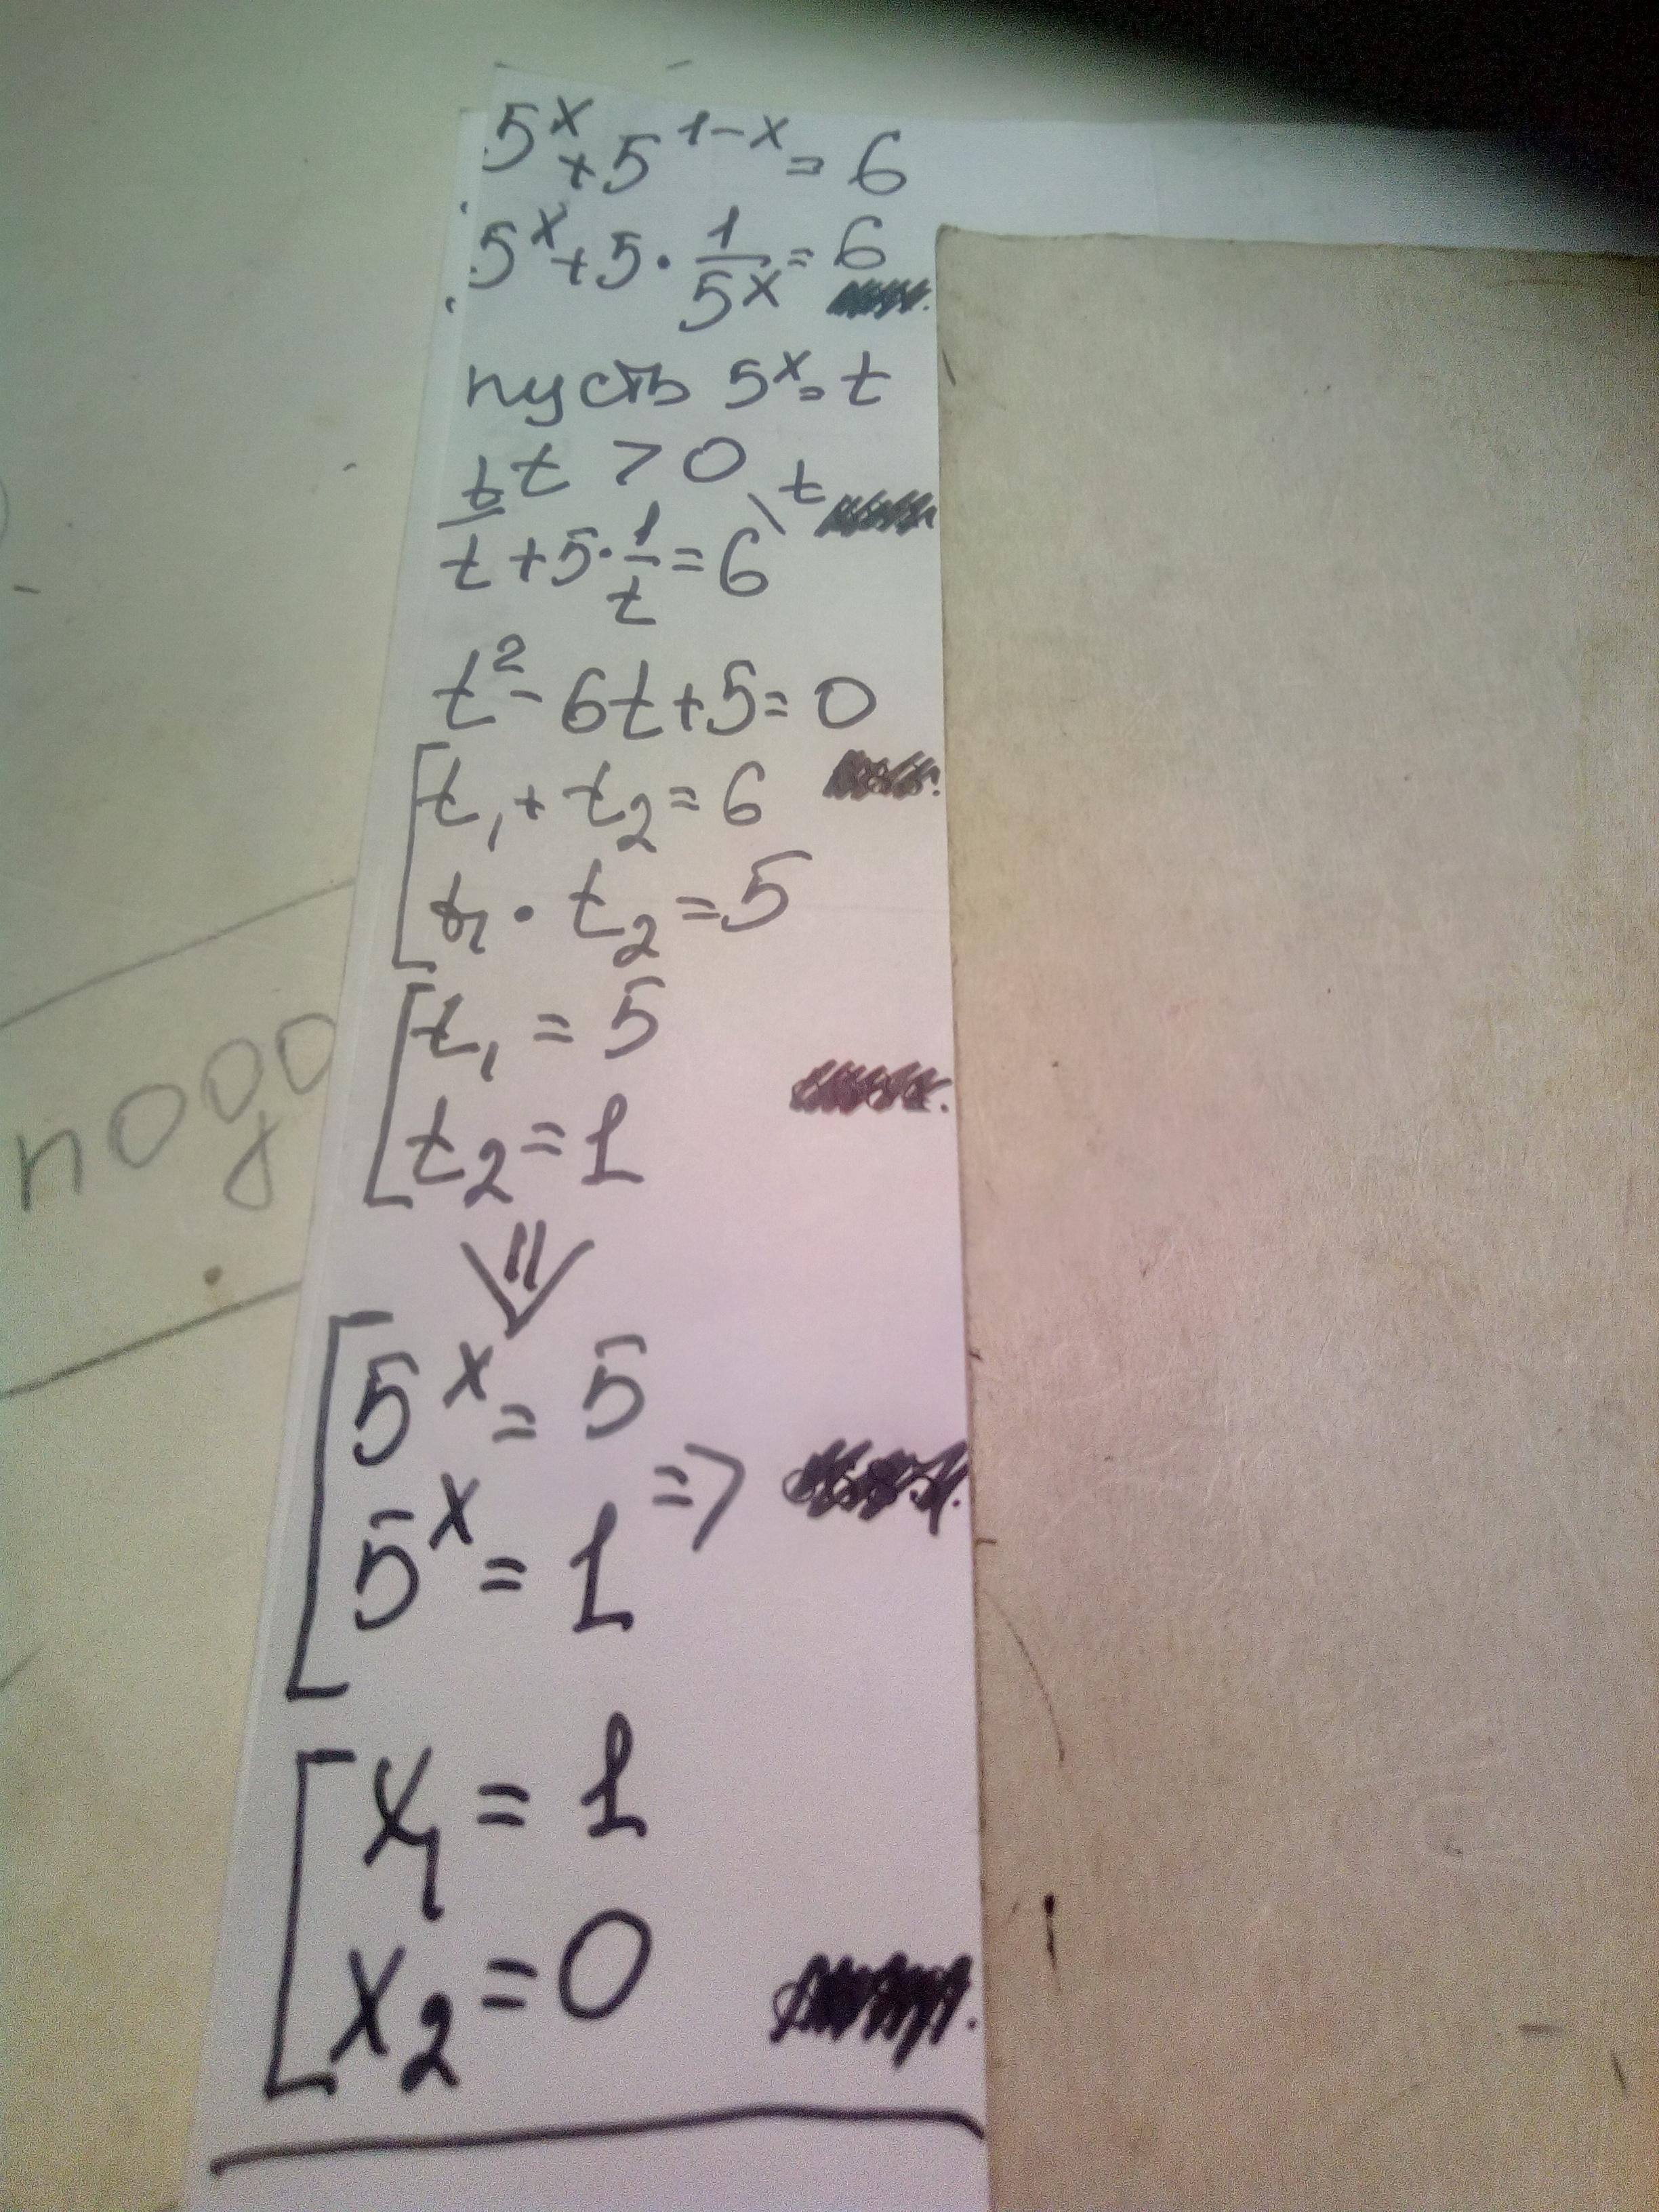 5^x + 5^{1-x} = 6
5^x + 5 · 1/5^x = 6
пусть 5^x = t
t > 0
t + 5 · 1/t = 6 \ t
t² - 6t + 5 = 0
t₁ + t₂ = 6
t₁ · t₂ = 5
t₁ = 5
t₂ = 1
5^x = 5
5^x = 1 =>
x₁ = 1
x₂ = 0